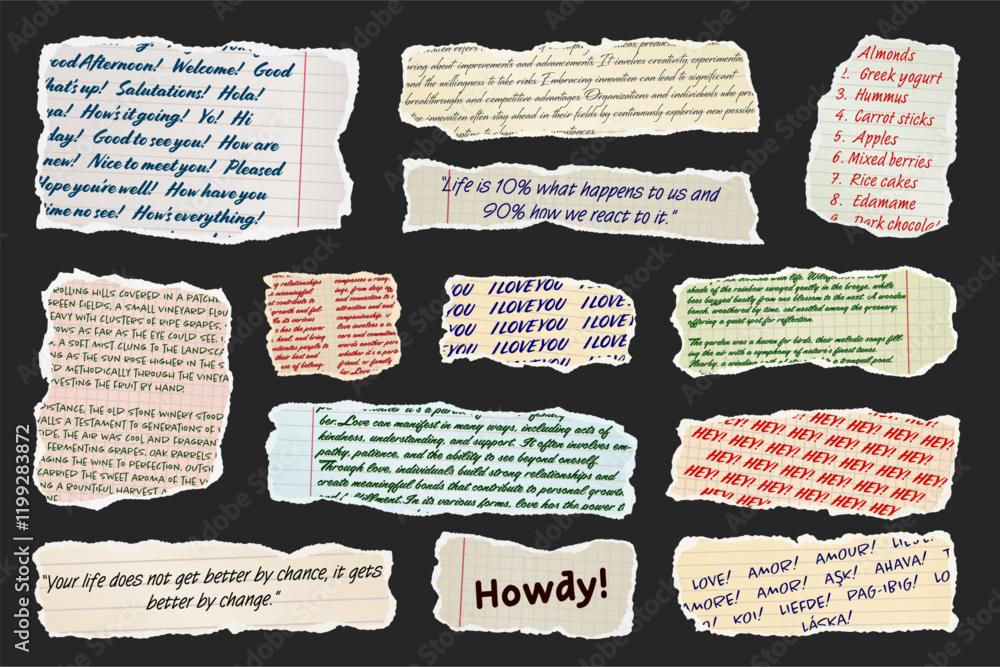 ood Afternoon! Welcome! Good
hat's up! Salutations! Hola!
ya! How's it going! Yo! Hi
day! Good to see you! How are
new! Nice to meet you! Pleased
Hope you're well! How have you
time no see! How's everything!
ring about improvements and advancements. It involves creativity, experimentat
and the willingness to take risks. Embracing innovation can lead to significant
breakthroughs and competitive advantages. Organizations and individuals who pri
tize innovation often stay ahead in their fields by continuously exploring new possibi
"Life is 10% what happens to us and
90% how we react to it."
Almonds
2. Greek yogurt
3. Hummus
4. Carrot sticks
5. Apples
6. Mixed berries
7. Rice cakes
8. Edamame
9. Dark chocola
ROLLING HILLS COVERED IN A PATCH
GREEN FIELDS, A SMALL VINEYARD FLOU
EAVY WITH CLUSTERS OF RIPE GRAPES,
OWS AS FAR AS THE EYE COULD SEE. I
A SOFT MIST CLUNG TO THE LANDSCA
NG AS THE SUN ROSE HIGHER IN THE S
D METHODICALLY THROUGH THE VINEYA
VESTING THE FRUIT BY HAND.
DISTANCE, THE OLD STONE WINERY STOOD
ALLS A TESTAMENT TO GENERATIONS OF
DE, THE AIR WAS COOL AND FRAGRAN
FERMENTING GRAPES. OAK BARRELS
AGING THE WINE TO PERFECTION. OUTSI
CARRIED THE SWEET AROMA OF THE V
NG A BOUNTIFUL HARVEST A
INE
relationships
contribute to
growth and ful-
In its various
has the power
heart, and bring
their best and
use of belong-
ings, from deep af-
and connection to
attraction and
companionship.
love involves a
care and
words another per-
whether it's a par
or family
YOU I LOVE YOU I LOVE
YOU I LOVE YOU I LOVE
YOU I LOVE YOU I LOVE
YOU I LOVE YOU I LOVE
shade of the rainbow swayed gently in the breeze, while
bees buzzed busily from one blossom to the next. A wooden
bench, weathered by time, sat nestled among the greenery,
offering a quiet spot for reflection.
The garden was a haven for birds, their melodic songs fill-
ing the air with a symphony of nature's finest tunes.
Nearby, a winding tranquil pond
ber. Love can manifest in many ways, including acts of
kindness, understanding, and support. It often involves em-
pathy, patience, and the ability to see beyond oneself.
Through love, individuals build strong relationships and
create meaningful bonds that contribute to personal growth
and fulfillment. In its various forms, love has the power t
HEY! HEY! HEY! HEY!
HEY! HEY! HEY! HEY! HEY!
HEY! HEY! HEY! HEY! HEY!
HEY! HEY! HEY! HEY! HEY!
HEY! HEY! HEY! HEY! HEY!
HEY! HEY! HEY
"Your life does not get better by chance, it gets
better by change."
Howdy!
LOVE! AMOR! AMOUR! LIEBE
AMORE! AMOR! AŞK! AHAVA! LO
KOI! LIEFDE! PAG-IBIG!
LÁSKA!
Adobe Stock | #1199283872